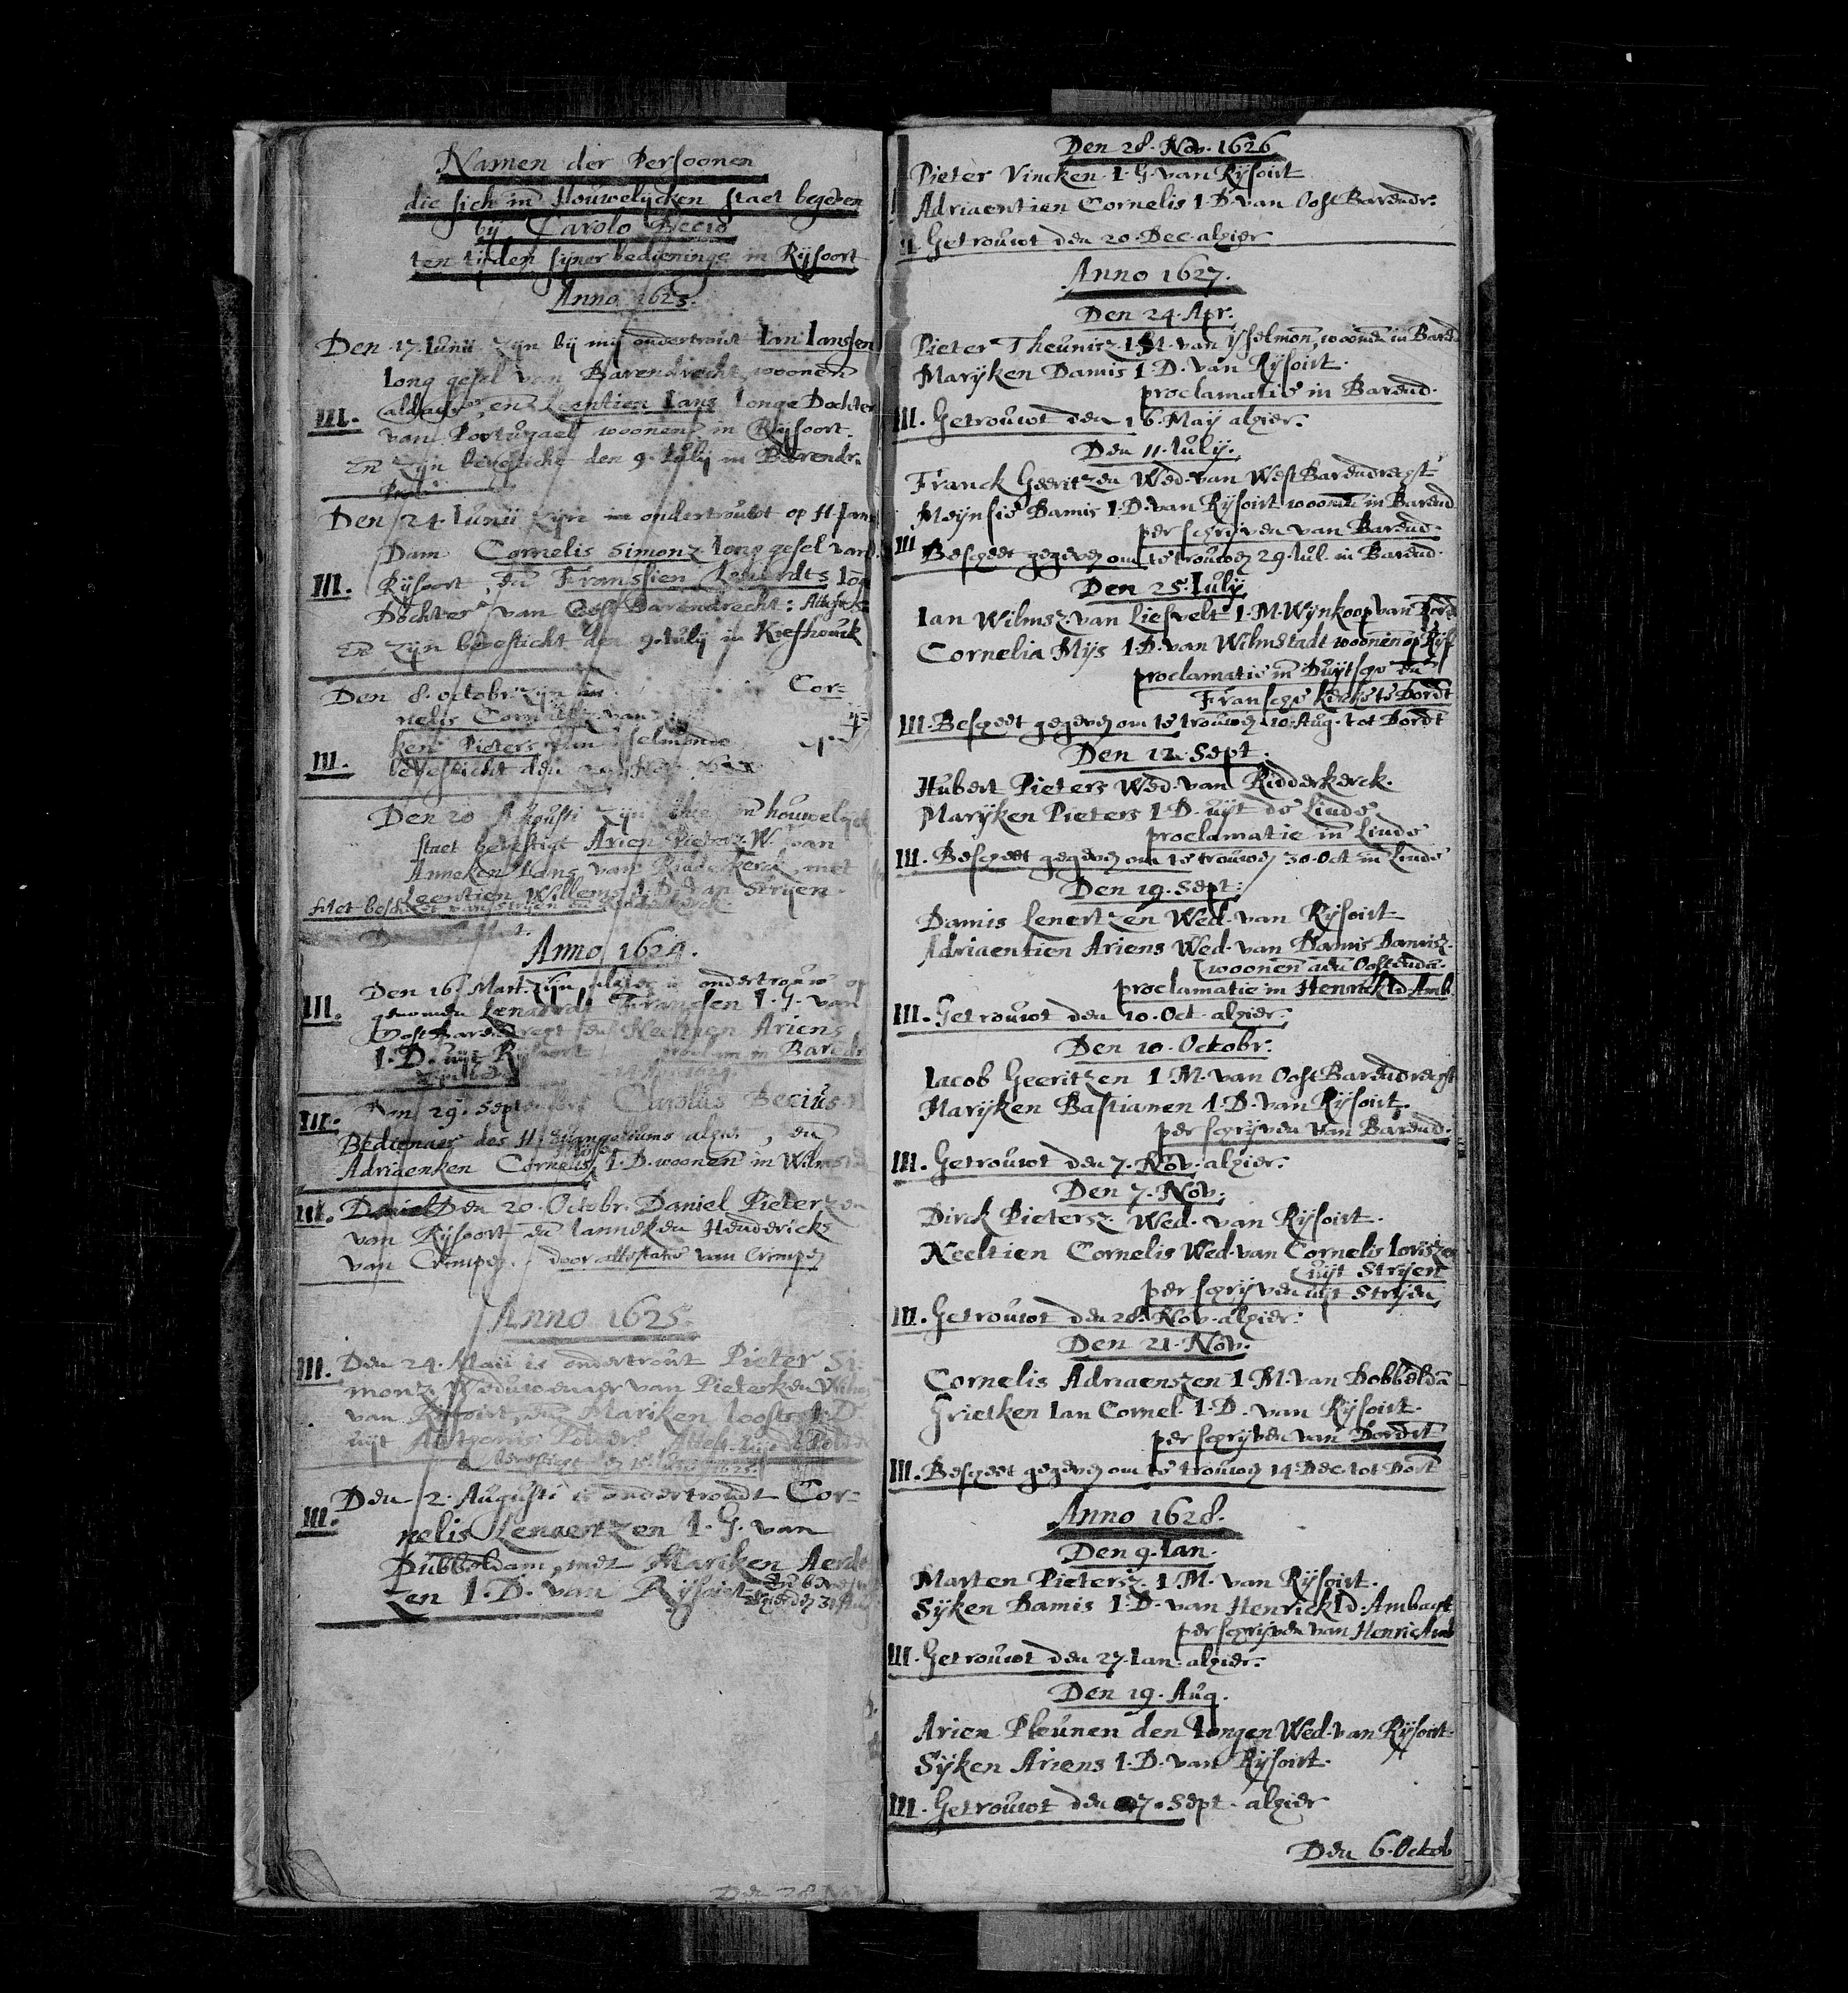 Namen der Persoonen
die sich in Houwelycken staet begeven
bij Carolo Becio
ten tijden sijner bedieninge in Rijsoort
Anno 1623.
Den 17. Iunii zijn bij mij ondertrout Ian Ianssen
Iong gesel van Barendrecht, woonen
aldaer, en Leentien Ians Ionge Dochter
III.
van Portugael woonen in Rijsoort.
en zijn bevesticht den 9. Iulij in Barendr.
Den 24. Iunii zijn in ondertrouwt op H. Ians
Dam Cornelis Simonz Iong gesel van
III. Rijsoort, en Franssien Lenardts Iog
Dochter van Oost Barendrecht: Attest
en zijn bevesticht den 9. Iulij in Kiefhouck
Den 8. octobr. zijn in Cor-
nelis Cornelisz van
ken Pieters van Isselmonde
III. bevesticht den
Den 20 Augusti zijn in houwelyck
staet bevestigt Arien Pietersz. W. van
Anneken Hans van Ridderkerck, met
Leentien Willems I. D. van Strijen.
Met bescheet van Strijen en Ridderkerck.
Anno 1624.
Den 16. Mart. zijn alhier in ondertrouw op
III. genomen Lenardt Fransen I. G. van
Oost Barendregt en Neeltgen Ariens
I. D. uijt Rijsoort in Barendr.
Den 29. Septembr. Carolus Becius
III.
Bedienaer des H. Euangeliums alhier, en
Adriaenken Cornelis I. D. woonen in Wilmst
III. Daniel Den 20. Octobr. Daniel Pieterzen
van Rijsoort en Ianneken Hendericks
van Crimpen. door attestatie van Crimpen
Anno 1625.
III. Den 24. Maii is ondertrout Pieter Si-
monz Weduwenaer van Pieterken Wilms
van Rijsoirt, en Mariken Ioosten I. D.
uijt Polder Attest. uijt de Polder
Den 2. Augusti is ondertroudt Cor-
III.
nelis Lenaertzen I. G. van
Dubbeldam, met Mariken Aerde
zen I. D. van Rijsoirt
Den 28 Nov
Den 28. Nov. 1626
Pieter Vincken I. G. van Rijsoirt
Adriaentien Cornelis I. D. van Oost Barendr.
Getrouwt den 20. Dec. alhier
Anno 1627.
Den 24. Apr.
Pieter Theunisz. I. M. van Yselmon, woonen in Barend
Marijken Damis I. D. van Rijsoirt.
proclamatie in Barend.
III. Getrouwt den 16. May alhier.
Den 11. Iulij.
Franck Geeritzen Wed. van West Barendregt
Meijnsie Damis I. D. van Rijsoirt woonen in Barend
per schrijven van Barend.
III Bescheet gegeven om te trouwen 29. Iul. in Barend.
Den 25. Iulij
Ian Wilmsz. van Liesvelt I. M. Wijnkoop van Dord
Cornelia Mijs I. D. van Wilmstadt woonen op Rijs
proclamatie in Duijtsche en
Fransche kercke te Dordt
III. Bescheet gegeven om te trouwen 10. Aug. tot Dordt
Den 12. Sept.
Hubert Pieters Wed. van Ridderkerck.
Marijken Pieters I. D. uijt de Linde
proclamatie in Linde
III. Bescheet gegeven om te trouwen 30. Oct. in Linde
Den 19. Sept:
Damis Lenertzen Wed. van Rijsoirt
Adriaentien Ariens Wed. van Damis Damisz.
woonen aen Oostendam
proclamatie in Henrick Id. Amb.
III. Getrouwt den 10. Oct. alhier.
Den 10. Octobr.
Iacob Geeritzen I. M. van Oost Barendregt
Marijken Bastianen I. D. van Rijsoirt.
per schrijven van Barend.
III. Getrouwt den 7. Nov. alhier.
Den 7. Nov.
Dirck Pietersz. Wed. van Rijsoirt.
Neeltien Cornelis Wed. van Cornelis Iorisze
uijt Strijen
per schrijven uijt Strijen
III. Getrouwt den 28. Nov. alhier.
Den 21. Nov.
Cornelis Adriaenszen I. M. van Dobbelda
Grietken Ian Cornel. I. D. van Rijsoirt.
per schrijven van Dordt
III. Bescheet gegeven om te trouwen 14. Dec. tot Dort
Anno 1628.
Den 9. Ian.
Marten Pietersz. I. M. van Rijsoirt.
Sijken Damis I. D. van Henrick Id. Ambagt
per schrijven van Henric Amb
III. Getrouwt den 27. Ian. alhier.
Den 19. Aug.
Arien Pleunen den Iongen Wed. van Rijsoirt.
Sijken Ariens I. D. van Rijsoirt.
III. Getrouwt den 7. Sept. alhier
Den 6. Octob